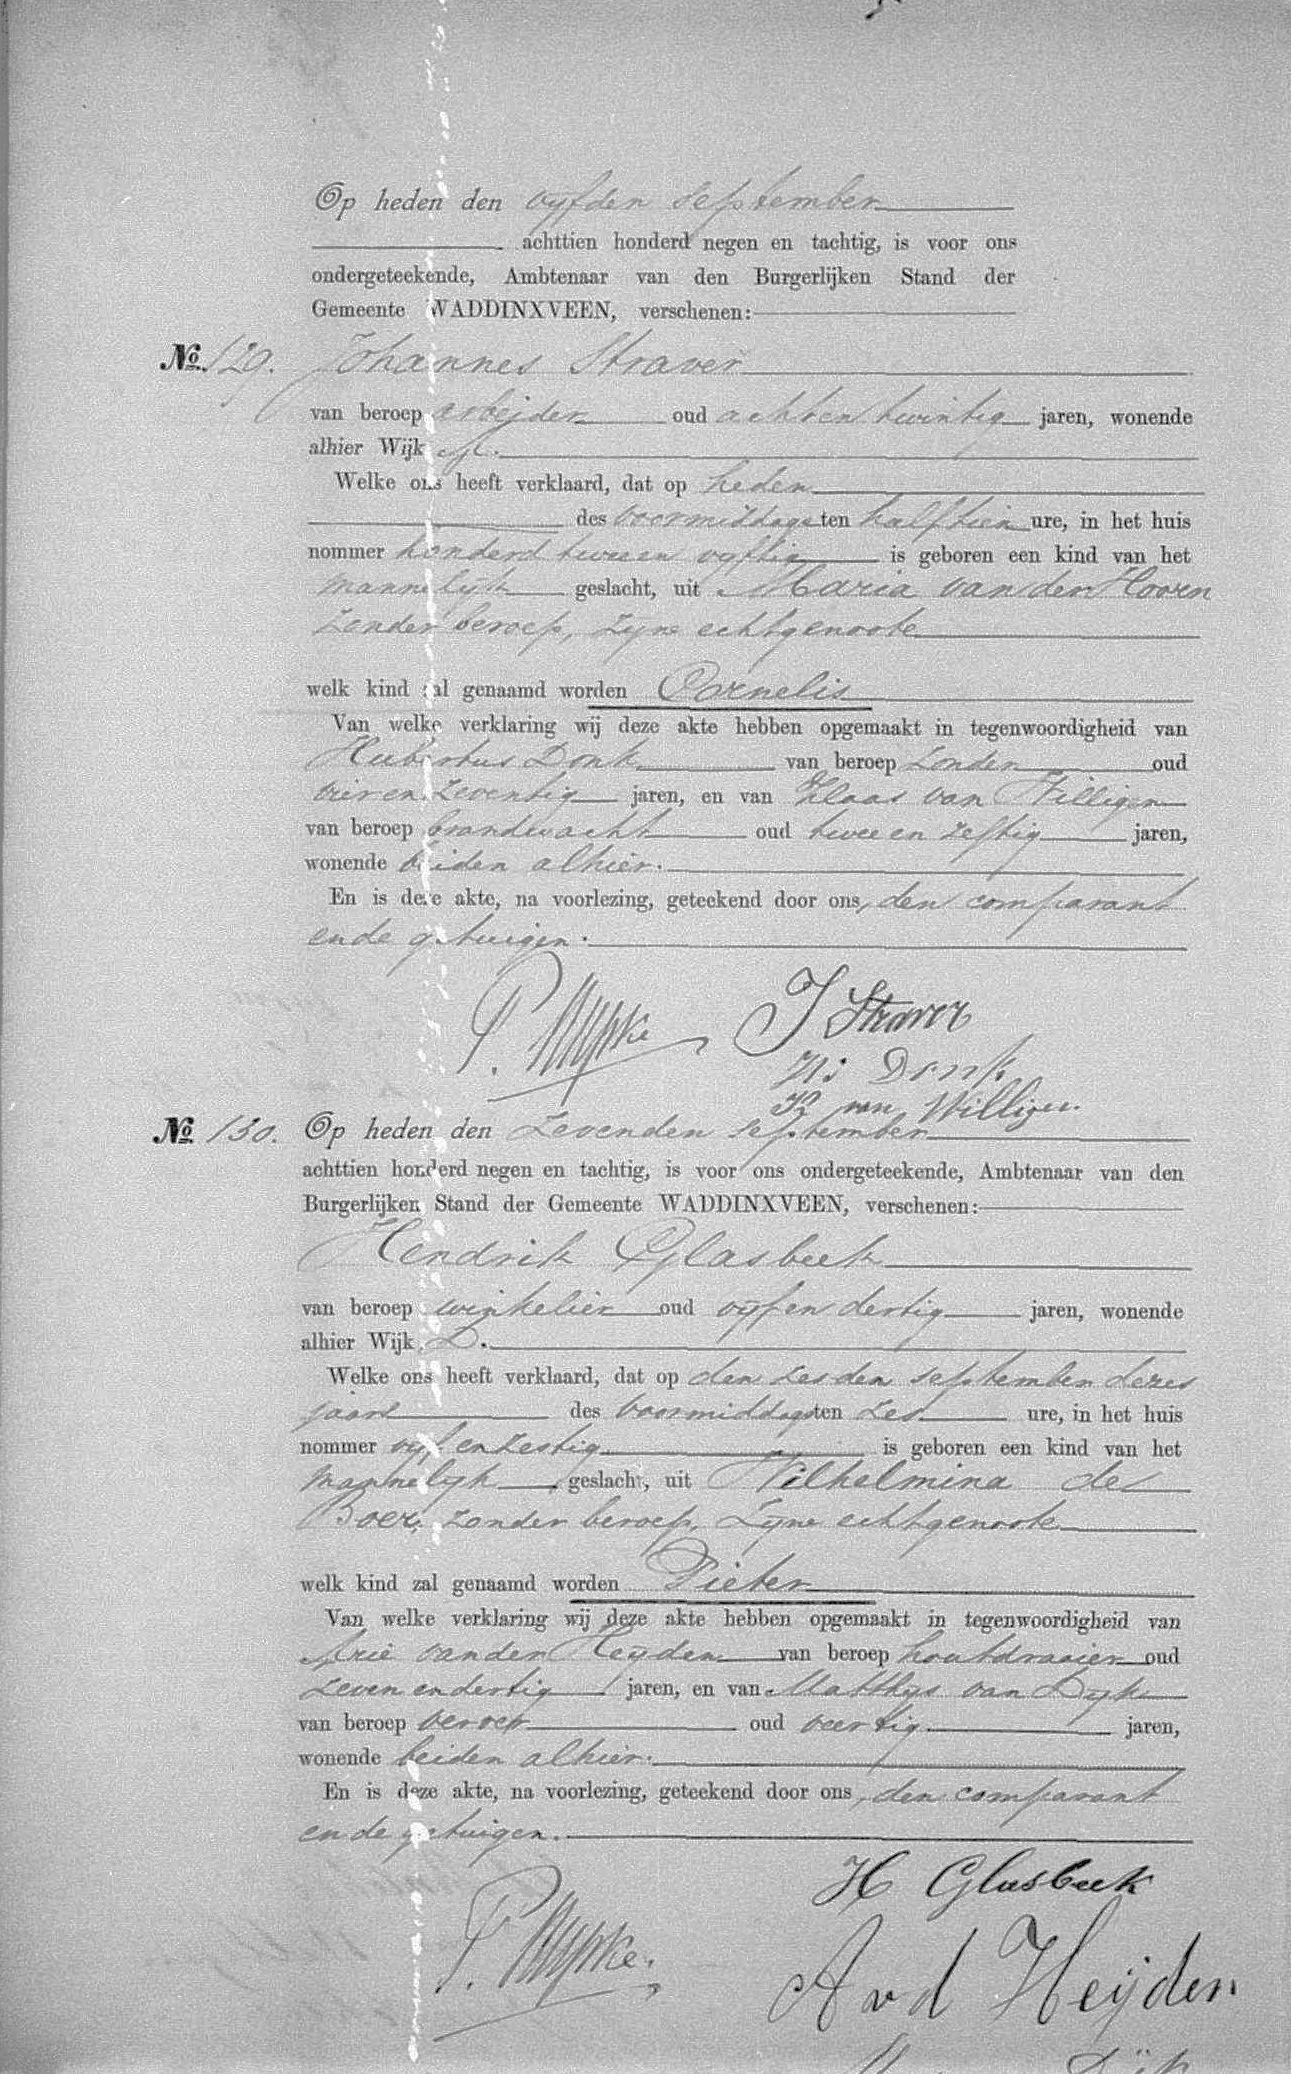 Op heden den vijfden September
achttien honderd negen en tachtig, is voor ons
ondergeteekende, Ambtenaar van den Burgerlijken Stand der
Gemeente WADDINXVEEN, verschenen:
No. 129. Johannes Straver
van beroep arbeider oud acht en twintig jaren, wonende
alhier Wijk
Welke ons heeft verklaard, dat op heden
des voormiddags ten half tien ure, in het huis
nommer honderd twee en vyftig is geboren een kind van het
mannelijk geslacht, uit Maria van der Hoorn
zonder beroep, zyne echtgenoote
welk kind zal genaamd worden Cornelis
Van welke verklaring wij deze akte hebben opgemaakt in tegenwoordigheid van
Hubertus Donk van beroep zonder oud
vier en zeventig jaren, en van Klaas van Willigen
van beroep brandwacht oud twee en zestig jaren,
wonende beiden alhier.
En is deze akte, na voorlezing, geteekend door ons, den comparant
en de getuigen.
J Straver
Hs Donk
K van Willigen
No. 130. Op heden den zevenden September
achttien honderd negen en tachtig, is voor ons ondergeteekende, Ambtenaar van den
Burgerlijken Stand der Gemeente WADDINXVEEN, verschenen:
Hendrik Glasbeek
van beroep winkelier oud vyf en dertig jaren, wonende
alhier Wijk D.
Welke ons heeft verklaard, dat op den zesden September dezes
jaars des voormiddags ten zes ure, in het huis
nommer vyf en zestig is geboren een kind van het
mannelyk geslacht, uit Wilhelmina de
Boer, zonder beroep, zyne echtgenoote
welk kind zal genaamd worden Pieter
Van welke verklaring wij deze akte hebben opgemaakt in tegenwoordigheid van
Arie van der Heyden van beroep houtdraaier oud
zeven en dertig jaren, en van Matthys van Dyk
van beroep verver oud veertig jaren,
wonende beiden alhier.
En is deze akte, na voorlezing, geteekend door ons, den comparant
en de getuigen.
H Glasbeek
A v d Heijden